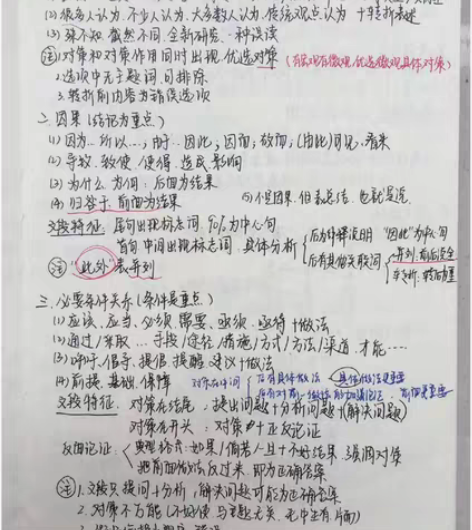 (2) 很多人认为、不少人认为、大多数人认为、传统观点认为 + 转折表述
(3) 殊不知、截然不同、全新研究、一种误读
注 1.对策和对策作用同时出现,优选对策 (有宏观有微观,优选微观具体对策)
2.选项中无主题词,可排除
3.转折前内容为错误选项
二、因果 (结论为重点)
(1) 因为…所以…;由于…因此;因而;故而;(由此)可见、看来
(2) 导致、致使、使得、造成、影响
(3) 为什么、为何:后面为结果
(4) 归咎于:前面为结果 (5)不是因果,但表总结,也就是说
文段特征:尾句出现标志词,90%为中心句
首句、中间出现标志词,具体分析 后为解释说明 "因此"为中心句
后有其他关联词 并列:前后完全
转折:转后为重
注 "此外"表并列
三、必要条件关系 (条件是重点)
(1) 应该、应当、必须、需要、亟须、亟待+做法
(2) 通过/采取…手段/途径/措施/方式/方法/渠道,才能…
(3) 呼吁、倡导、提倡、提醒、建议+做法
(4) 前提、基础、保障 对策在中间 后有具体做法 具体做法更重要
文段特征:对策在结尾:提出问题+分析问题+(解决问题)
对策在开头:对策+正反论证
反面论证: 典型格式:如果/倘若/一旦+不好结果,强调对策
把前面做法反过来,即为正确答案
注 1.文段只提问+分析,解决问题可能为正确答案
2.对策不万能(不仅使与主题无关、无中生有、片面)